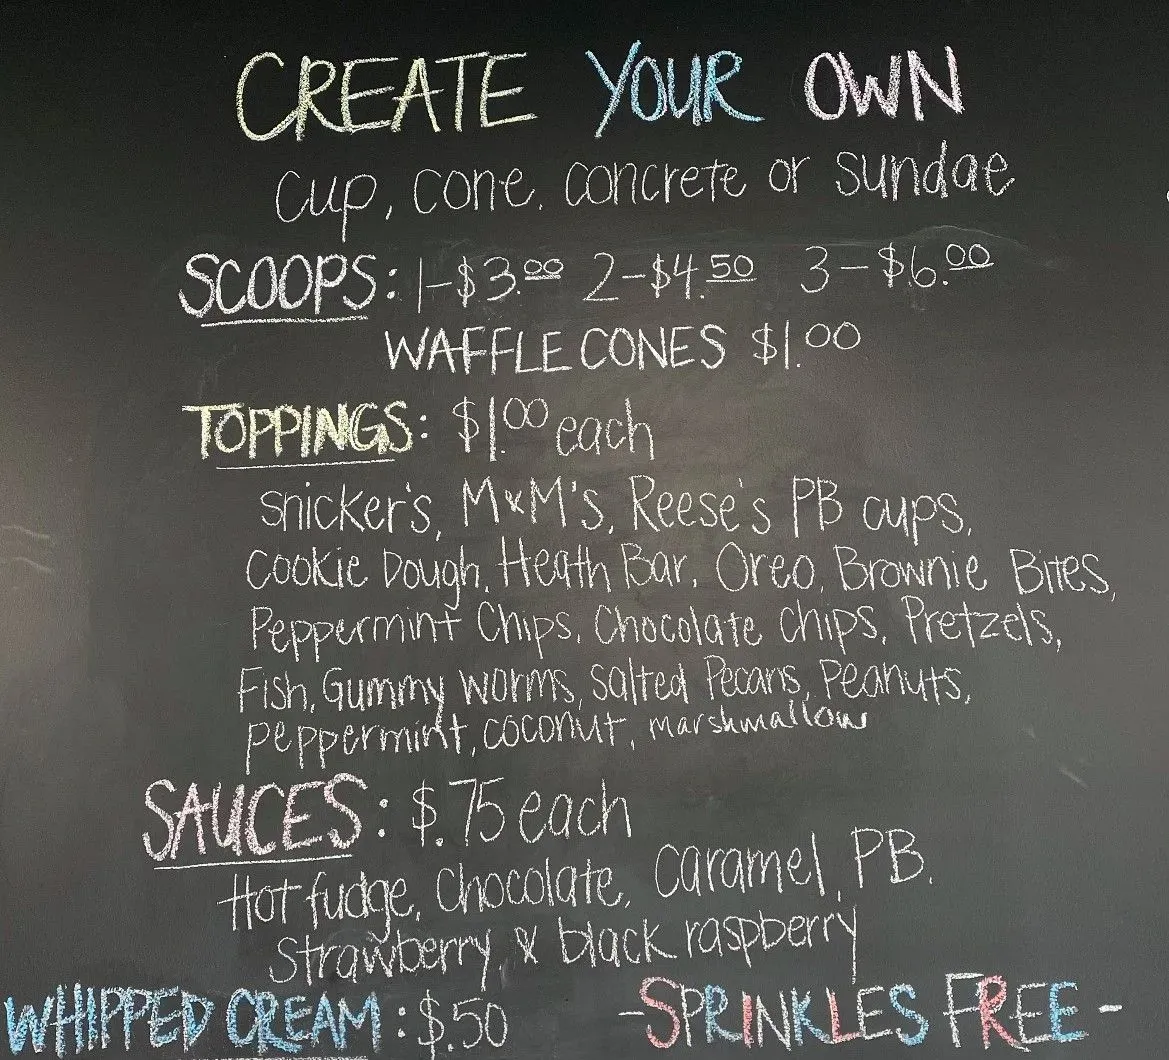 CREATE YOUR OWN
cup, cone, concrete or sundae
SCOOPS: 1-$3.00 2-$4.50 3-$6.00
WAFFLE CONES $1.00
TOPPINGS: $1.00 each
Snicker's, M&M's, Reese's PB cups,
Cookie Dough, Heath Bar, Oreo, Brownie Bites,
Peppermint Chips, Chocolate chips, Pretzels,
Fish, Gummy worms, Salted Pecans, Peanuts,
peppermint, coconut, marshmallow
SAUCES: $.75 each
Hot fudge, Chocolate, Caramel, PB,
Strawberry, & black raspberry
WHIPPED CREAM: $.50 -SPRINKLES FREE-